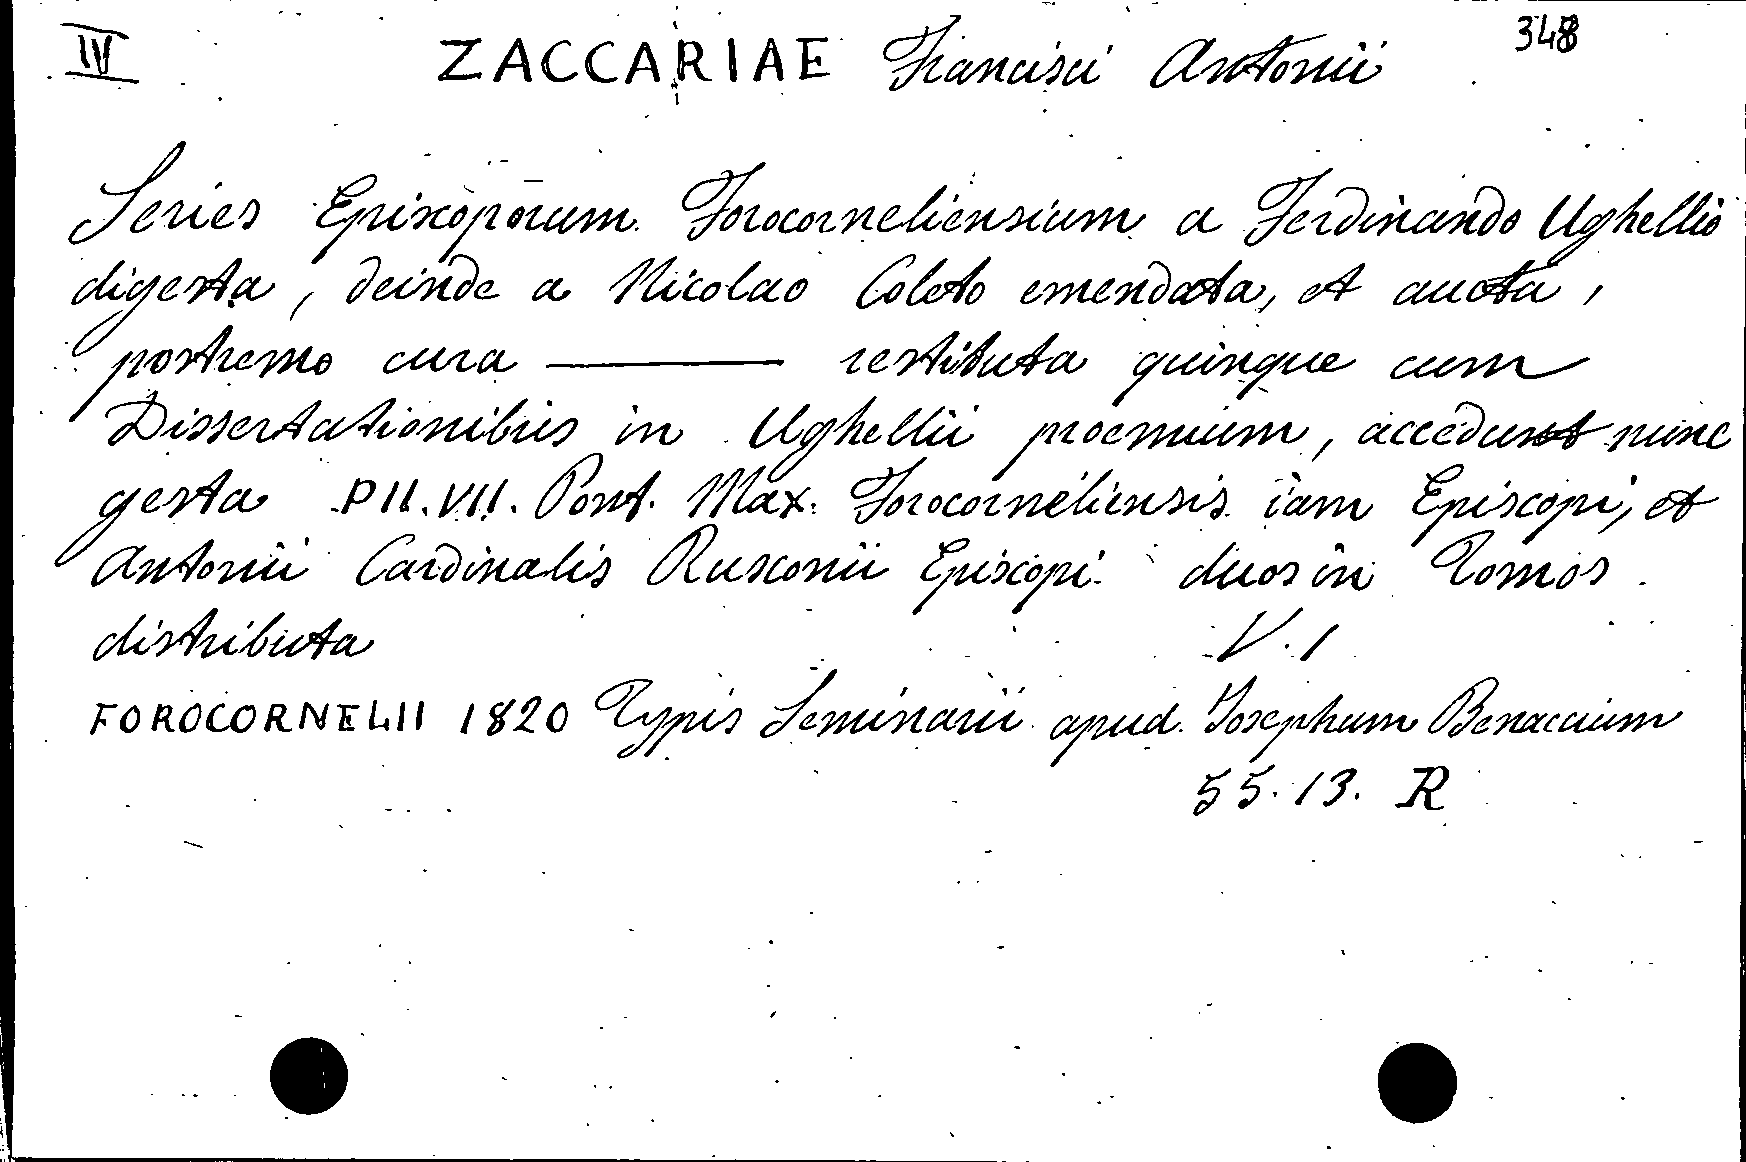 IV ZACCARIAE Francisci Antonii 348
Series Episcoporum Forocorneliensium a Ferdinando Ughellio
digesta, deinde a Nicolao Coleto emendata, et aucta,
postremo cura ——— restituta quinque cum
Dissertationibus in Ughellii proemium, accedunt nunc
gesta PII. VII. Pont. Max. Forocorneliensis iam Episcopi, et
Antonii Cardinalis Rusconii Episcopi duos in Tomos
distributa V. 1
FOROCORNELII 1820 Typis Seminarii apud Josephum Benaccium
55. 13. R